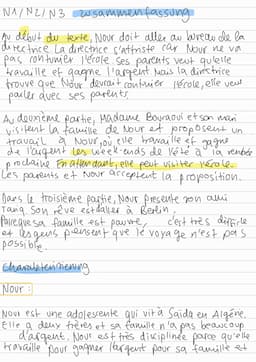 N1/N2/N3 Zusammenfassung
Au début du texte, Nour doit aller au bureau de la
directrice. La directrice s'attriste car Nour ne va
pas continuer l'école. Ses parents veut qu'elle
travaille et gagne l'argent mais la directrice
trouve que Nour devrait continuer l'école, elle veut
parler avec ses parents.
Au deuxième partie, Madame Bouraoui et son mari
visitent la famille de Nour et proposent un
travail à Nour, où elle travaille et gagne
de l'argent les week-ends de l'été à la rentrée
prochaine. En attendant, elle peut visiter l'école.
Les parents et Nour acceptent la proposition.
Dans le troisième partie, Nour presente son ami
Tang. Son rêve est d'aller à Berlin.
Parceque sa famille est pauvre, c'est très difficile
et les gens pensent que le voyage n'est pas
possible.
Charakterisierung
Nour:
Nour est une adolescente qui vit à Saïda en Algérie.
Elle a deux frères et sa famille n'a pas beaucoup
d'argent. Nour est très disciplinée parce qu'elle
travaille pour gagner l'argent pour sa famille et